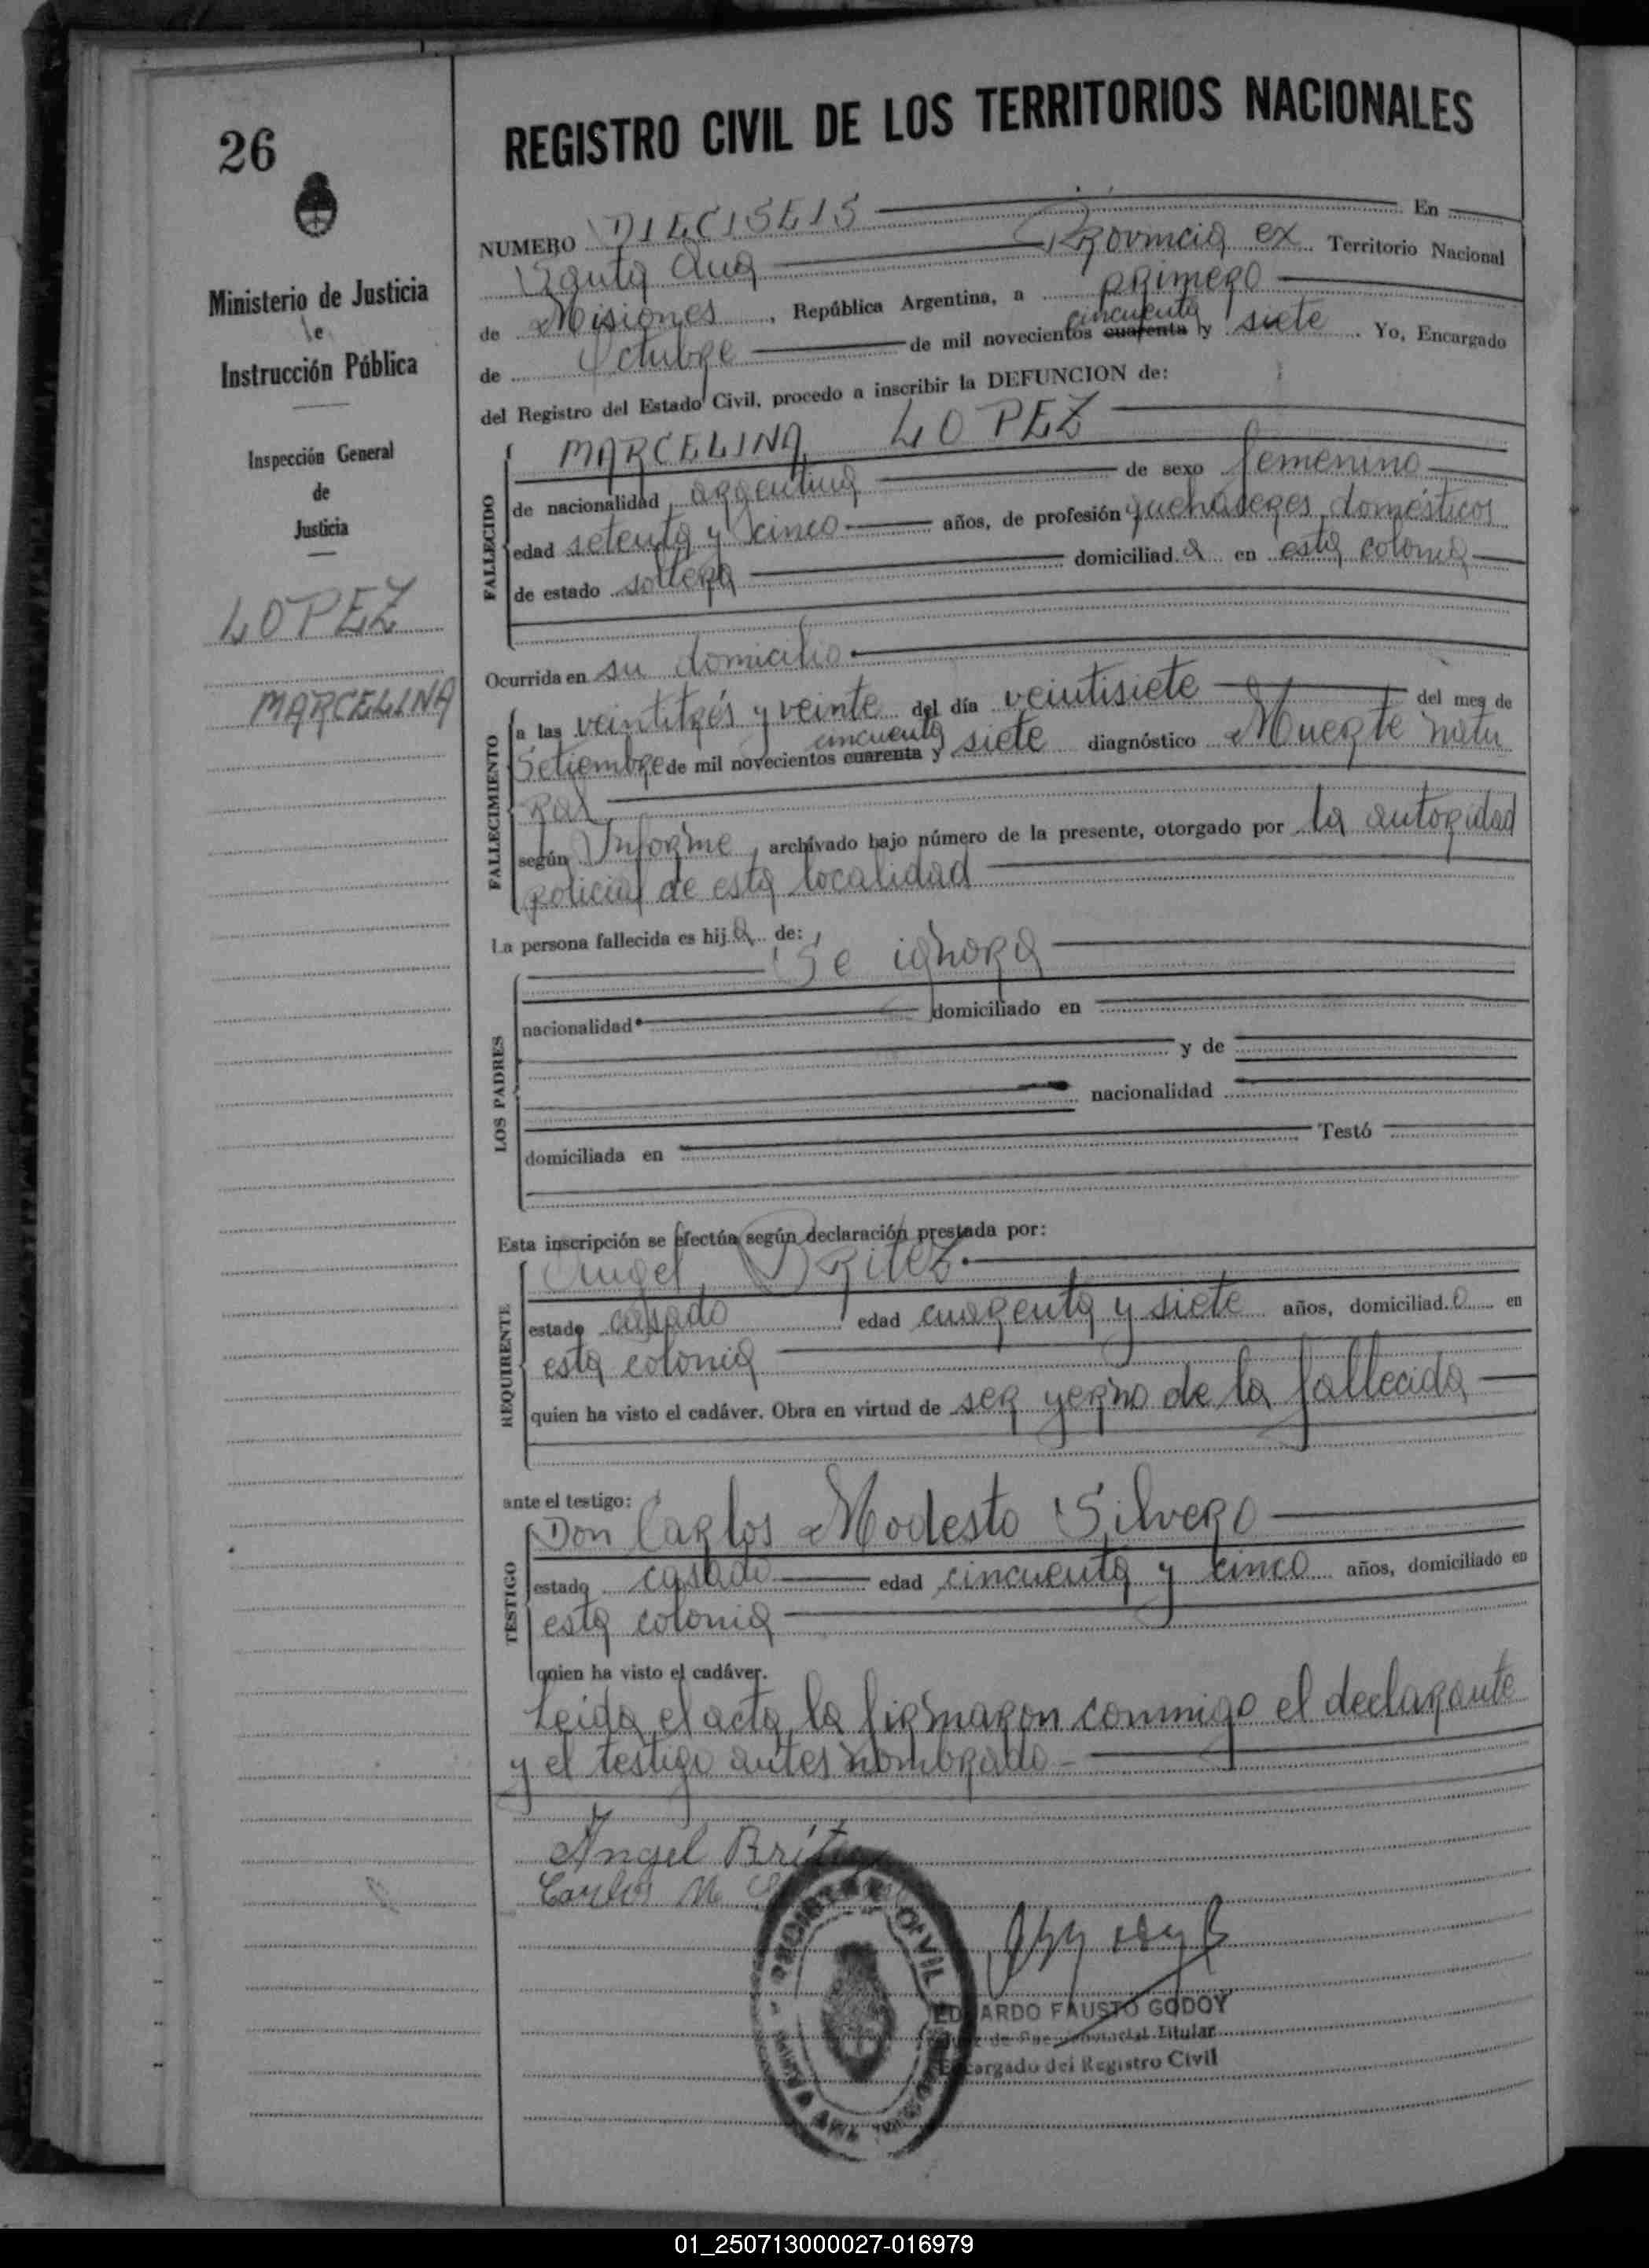 26
Ministerio de Justicia
e
Instrucción Pública
Inspección General
de
Justicia
LOPEZ
MARCELINA
REGISTRO CIVIL DE LOS TERRITORIOS NACIONALES
NUMERO DIECISEIS En
Santa Ana Provincia ex Territorio Nacional
de Misiones, República Argentina, a primero
cincuenta
de Octubre de mil novecientos cuarenta y siete. Yo, Encargado
del Registro del Estado Civil, procedo a inscribir la DEFUNCION de:
FALLECIDO
MARCELINA LOPEZ
de nacionalidad argentina de sexo femenino
edad setenta y cinco años, de profesión quehaseres domésticos
de estado soltera domiciliad a en esta colonia
Ocurrida en su domicilio
FALLECIMIENTO
a las veintitrés y veinte del día veintisiete del mes de
cincuenta
Setiembre de mil novecientos cuarenta y siete diagnóstico Muerte natu
ral
según Informe, archivado bajo número de la presente, otorgado por la autoridad
policial de esta localidad
La persona fallecida es hij a de:
Se ignora
LOS PADRES
nacionalidad domiciliado en
y de
nacionalidad
domiciliada en Testó
Esta inscripción se efectúa según declaración prestada por:
REQUIRENTE
Angel Britez
estado casado edad cuarenta y siete años, domiciliad o en
esta colonia
quien ha visto el cadáver. Obra en virtud de ser yerno de la fallecida
ante el testigo:
TESTIGO
Don Carlos Modesto Silvero
estado casado edad cincuenta y cinco años, domiciliado en
esta colonia
quien ha visto el cadáver.
Leida el acta la firmaron conmigo el declarante
y el testigo antes nombrado
Angel Britez
Carlos M
REGISTRO CIVIL
EDUARDO FAUSTO GODOY
Titular
Encargado del Registro Civil
01_250713000027-016979